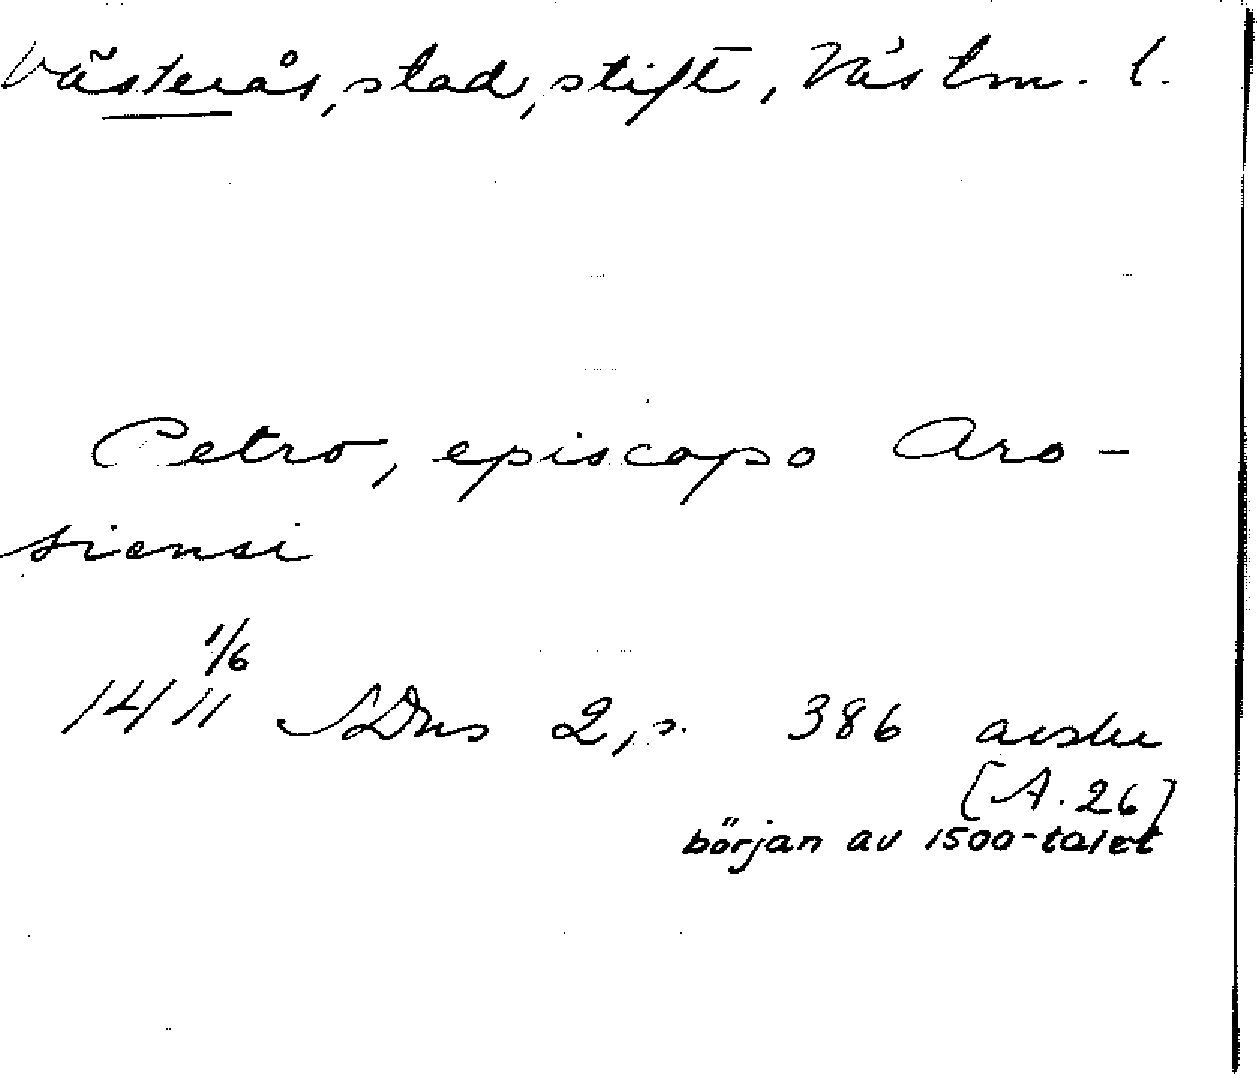 Västerås, stad, stift, Västm. l.
Petro, episcopo Aro-
siensi
1/6
1411 SDns 2, s. 386 avskr
[A. 26]
början av 1500-talet